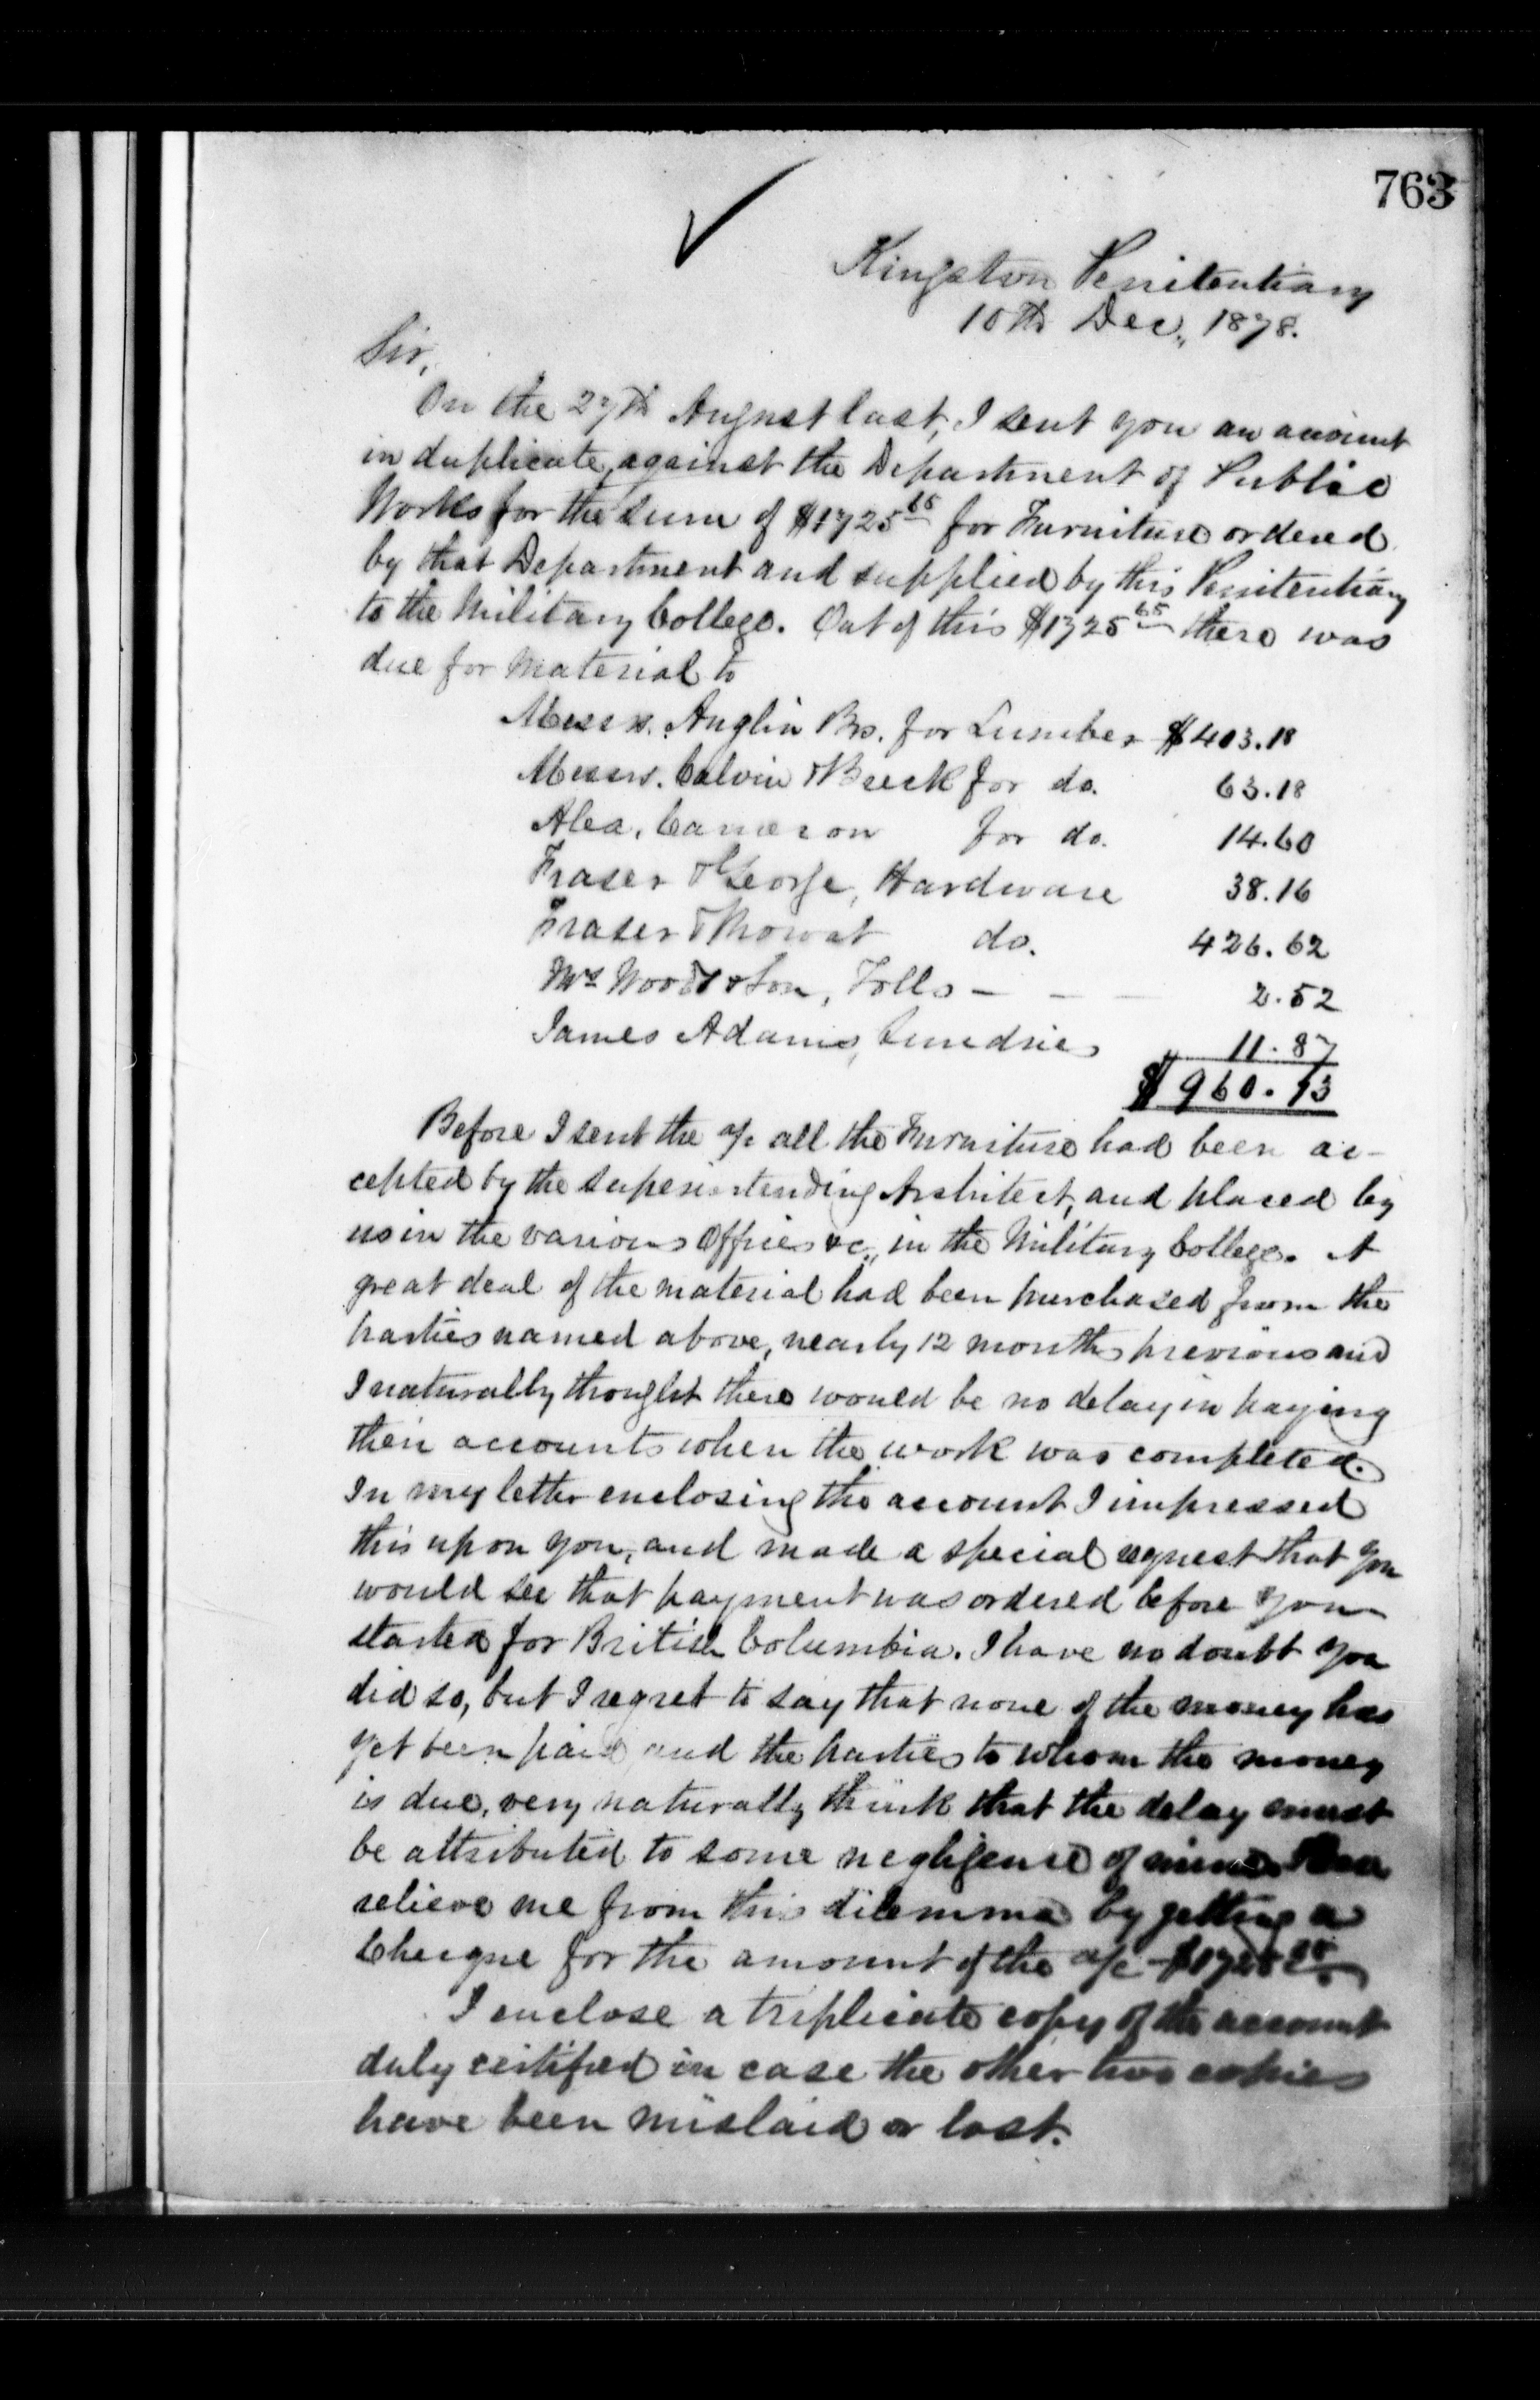 763
Kingston Penitentiary
10th Dec., 1878.
Sir,
On the 27th August last, I sent you an account
in duplicate, against the Department of Public
Works for the sum of $1725 65 for Furniture ordered
by that Department and supplied by this Penitentiary
to the Military College. Out of this $1725 65 there was
due for material to
Messrs. Anglin Bro. for Lumber $403.18
Messrs. Calvin & Breck for do. 63.18
Alex. Cameron for do. 14.60
Fraser & George, Hardware 38.16
Fraser & Mowat do. 426.62
& Son, Tolls — — — 2.52
James Adams, Sundries 11.87
$960.13
Before I sent the a/c all the Furniture had been ac-
cepted by the Superintending Architect, and placed by
us in the various Offices &c., in the Military College. A
great deal of the material had been purchased from the
parties named above, nearly 12 months previous and
I naturally thought there would be no delay in paying
their accounts when the work was completed.
In my letter enclosing the account I impressed
this upon you, and made a special request that you
would see that payment was ordered before you
started for British Columbia. I have no doubt you
did so, but I regret to say that none of the money has
yet been paid and the parties to whom the money
is due, very naturally think that the delay must
be attributed to some negligence of mine.
relieve me from this dilemma by getting a
Cheique for the amount of the a/c - $1725 65
I enclose a triplicate copy of the account
duly certified in case the other two copies
have been mislaid or lost.